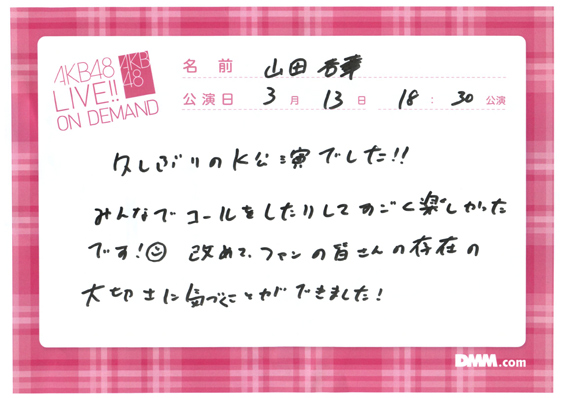 AKB48
LIVE!!
ON DEMAND
AKB
48
名前 山田杏華
公演日 3月13日 18:30公演
久しぶりのK公演でした!!
みんなでコールをしたりしてすごく楽しかった
です!☺ 改めて、ファンの皆さんの存在の
大切さに気づくことができました!
DMM.com